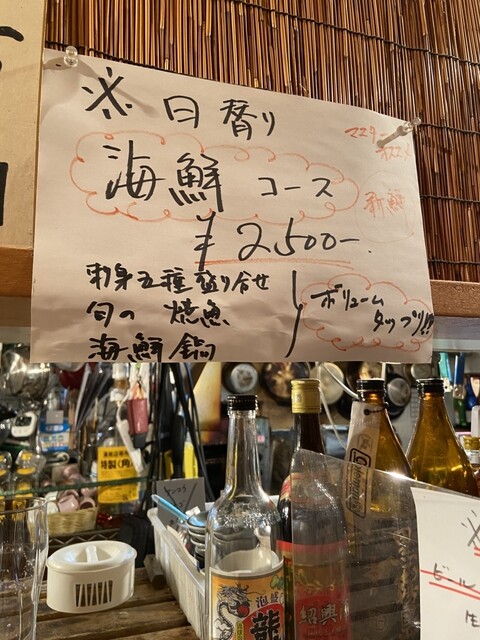 ※ 日替り
マスター
オススメ
海鮮 コース
新鮮
¥2,500-.
刺身五種盛り合せ
旬の 焼魚
海鮮鍋
ボリューム
タップリ!!
特製(角)
泡盛
龍
紹興
※
ビール
生